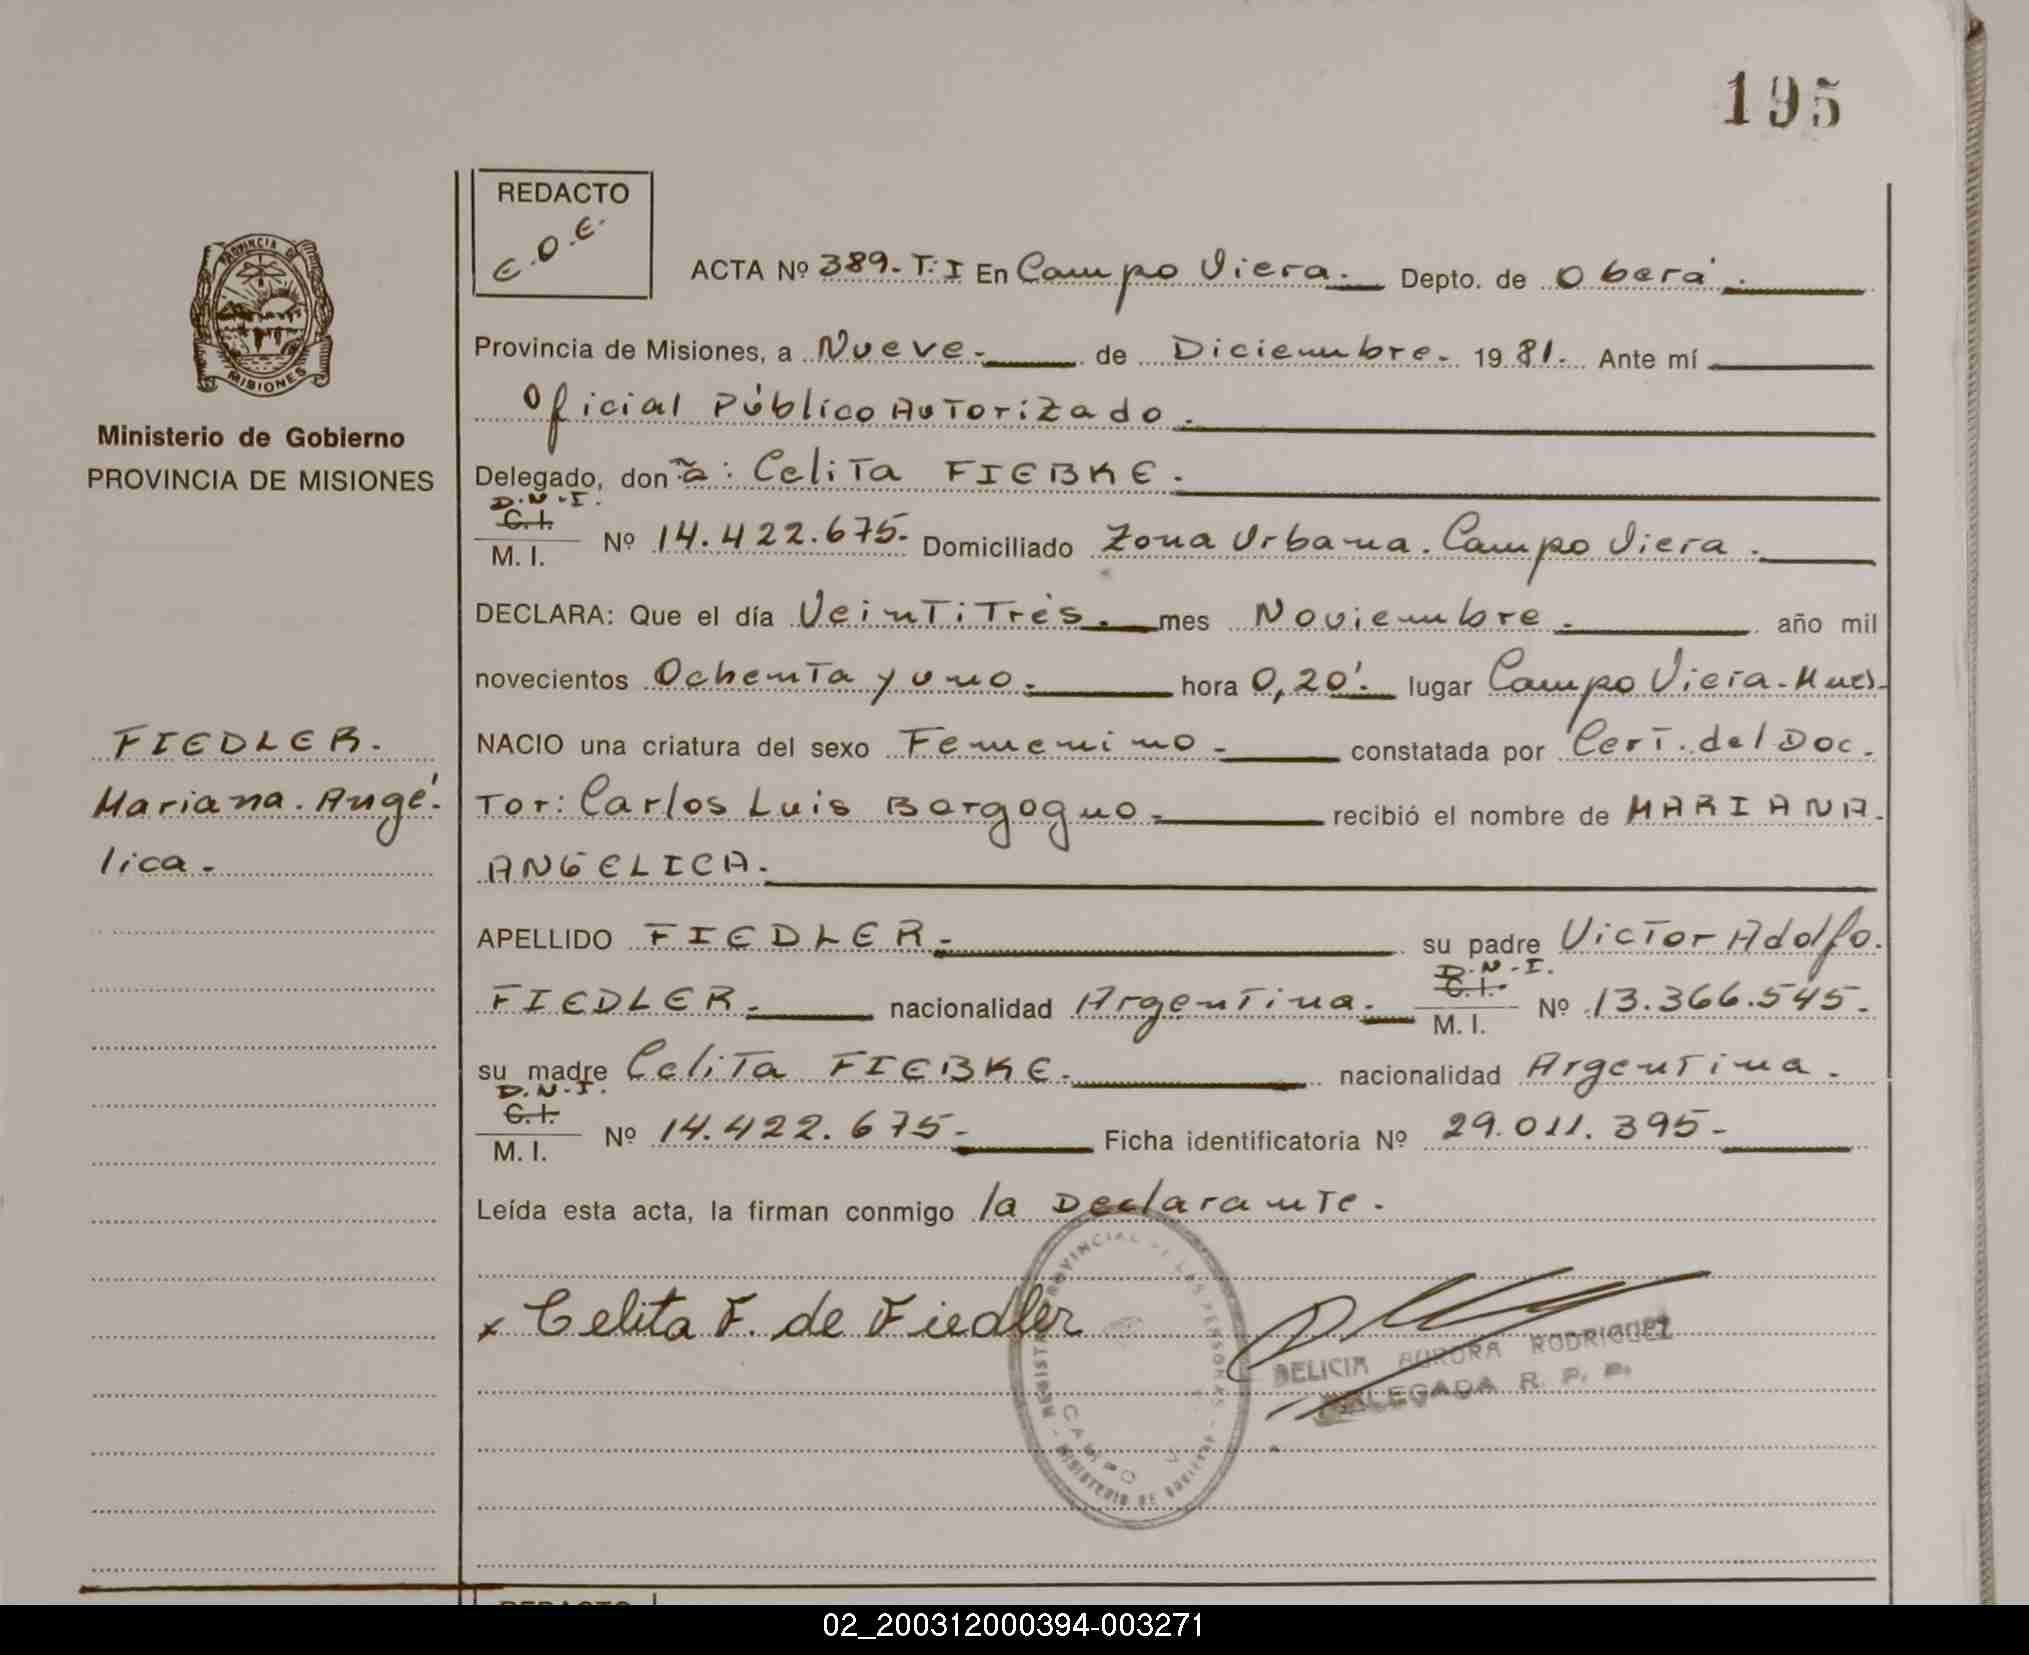 195
REDACTO
E.O.E.
PROVINCIA DE
MISIONES
ACTA Nº 389.T:I En Campo Viera. Depto. de Oberá.
Provincia de Misiones, a Nueve. de Diciembre. 1981. Ante mí
Oficial Público Autorizado.
Ministerio de Gobierno
PROVINCIA DE MISIONES
Delegado, don ña: Celita FIEBKE.
D.N.I.
C.I.
M.I. Nº 14.422.675. Domiciliado Zona Urbana. Campo Viera.
DECLARA: Que el día Veintitrés. mes Noviembre. año mil
novecientos Ochenta y uno. hora 0,20'. lugar Campo Viera.
FIEDLER.
Mariana. Angé.
lica.
NACIO una criatura del sexo Femenino. constatada por Cert. del Doc.
tor: Carlos Luis Borgogno. recibió el nombre de MARIANA.
ANGELICA.
APELLIDO FIEDLER. su padre Victor Adolfo.
FIEDLER. nacionalidad Argentina. D.N.I. C.I. M.I. Nº 13.366.545.
su madre Celita FIEBKE. nacionalidad Argentina.
D.N.I.
C.I.
M.I. Nº 14.422.675- Ficha identificatoria Nº 29.011.395-
Leída esta acta, la firman conmigo la Declarante.
x Celita F. de Fiedler
REGISTRO PROVINCIAL DE LAS PERSONAS
MINISTERIO DE GOBIERNO
CAMPO
DELICIA AURORA RODRIGUEZ
DELEGADA R. P. P.
REDACTO
02_200312000394-003271